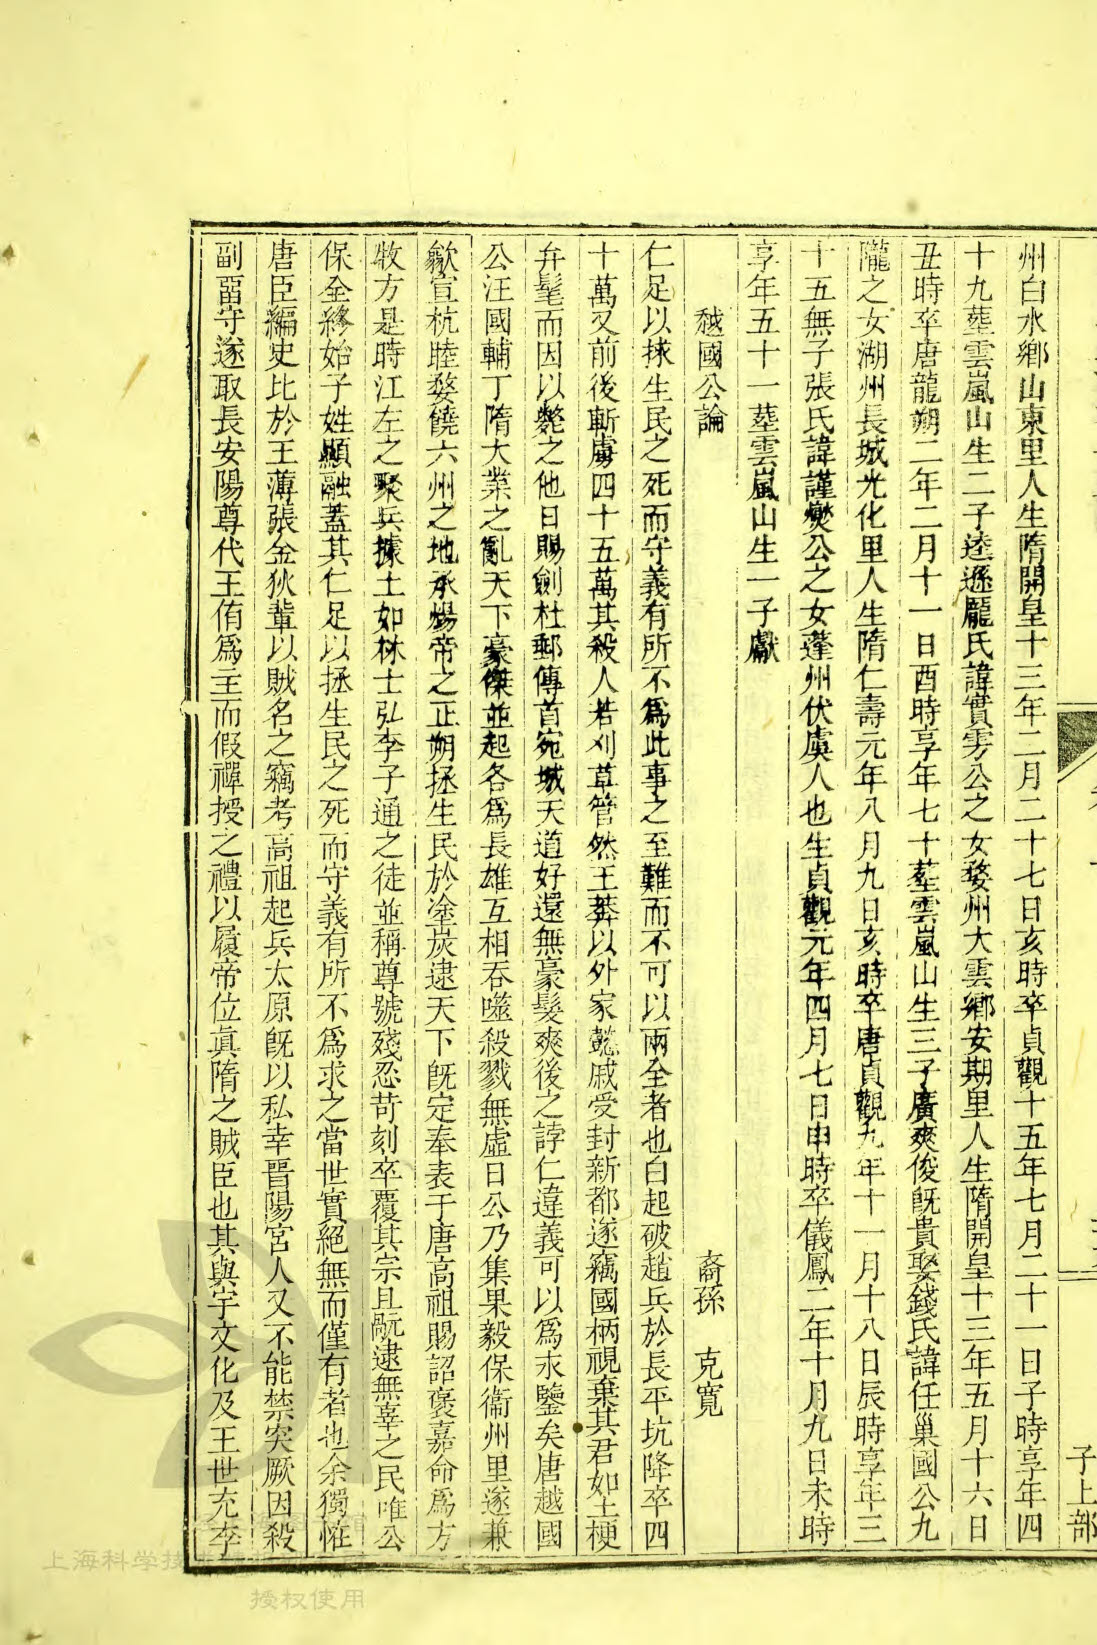 子上部
州白水鄉山東里人生隋開皇十三年二月二十七日亥時卒貞觀十五年七月二十一日子時享年四
十九塟雲嵐山生二子逵遜龐氏諱實雱公之女婺州大雲鄉安期里人生隋開皇十三年五月十六日
丑時卒唐龍朔二年二月十一日酉時享年七十塟雲嵐山生三子廣爽俊旣貴娶錢氏諱任巢國公九
隴之女湖州長城光化里人生隋仁壽元年八月九日亥時卒唐貞觀九年十一月十八日辰時享年三
十五無子張氏諱謹爕公之女蓬州伏虞人也生貞觀元年四月七日申時卒儀鳳二年十月九日未時
享年五十一塟雲嵐山生一子獻
越國公論
裔孫 克寬
仁足以拯生民之死而守義有所不爲此事之至難而不可以兩全者也白起破趙兵於長平坑降卒四
十萬又前後斬虜四十五萬其殺人若刈草管然王莽以外家懿戚受封新都遂竊國柄視棄其君如土梗
弁髦而因以斃之他日賜劍杜郵傳首宛城天道好還無豪髮爽後之誖仁違義可以爲永鑒矣唐越國
公汪國輔丁隋大業之亂天下豪傑並起各爲長雄互相吞噬殺戮無虛日公乃集果毅保衞州里遂兼
歙宣杭睦婺饒六州之地承煬帝之正朔拯生民於塗炭逮天下旣定奉表于唐高祖賜詔褒嘉命爲方
牧方是時江左之聚兵據土如林士弘李子通之徒並稱尊號殘忍苛刻卒覆其宗且翫逮無辜之民唯公
保全終始子姓顯融蓋其仁足以拯生民之死而守義有所不爲求之當世實絕無而僅有者也余獨恠
唐臣編史比於王薄張金狄輩以賊名之竊考高祖起兵太原旣以私幸晉陽宮人又不能禁突厥因殺
副畱守遂取長安陽尊代王侑爲主而假禪授之禮以履帝位眞隋之賊臣也其與宇文化及王世充李
上海科学技
授权使用